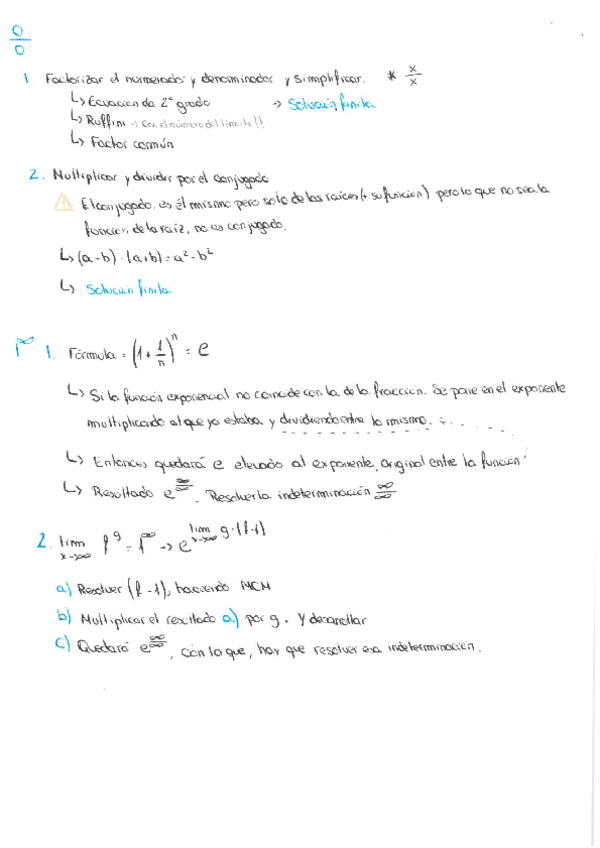 0/0
1. Factorizar el numerador y denominador y simplificar. * x/x
↳ Ecuación de 2º grado → Solución finita
↳ Ruffini → Con el número del límite!!
↳ Factor común
2. Multiplicar y dividir por el conjugado
⚠ El conjugado, es el mismo pero solo de las raíces (+ su función) pero lo que no sea la
función de la raíz, no es conjugado.
↳ (a-b)·(a+b) = a²-b²
↳ Solución finita
1^∞ 1. Fórmula = (1 + 1/n)^n = e
↳ Si la función exponencial no coincide con la de la fracción. Se pone en el exponente
multiplicando al que ya estaba y dividiendo entre lo mismo.
↳ Entonces quedará e elevado al exponente, original entre la función
↳ Resultado e^(∞/∞). Resolver la indeterminación ∞/∞
2. lim x→∞ f^g = 1^∞ → e^(lim x→∞ g·(f-1))
a) Resolver (f-1), haciendo MCM
b) Multiplicar el resultado a) por g. Y desarrollar
c) Quedará e^(∞/∞), con lo que, hay que resolver esa indeterminación.